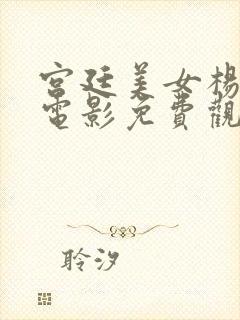 宫廷美女楊
電影免費觀
聆汐